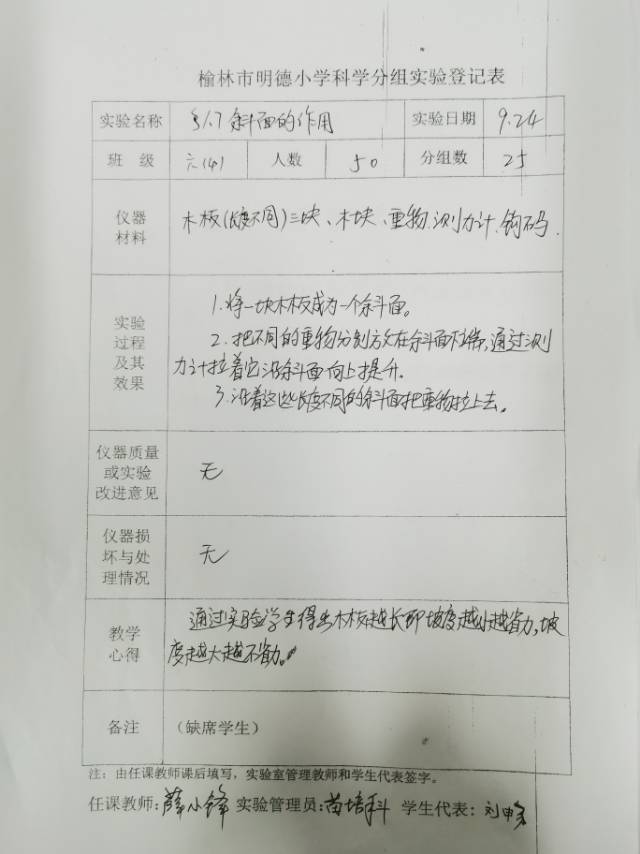 榆林市明德小学科学分组实验登记表
实验名称 §1.7 斜面的作用 实验日期 9.24
班 级 六(4) 人数 50 分组数 25
仪器
材料
木板(长度不同)三块、木块、重物、测力计、钩码.
实验
过程
及其
效果
1.将一块木板成为一个斜面。
2.把不同的重物分别放在斜面下端,通过测
力计拉着它沿斜面向上提升.
3.沿着这些长度不同的斜面把重物拉上去。
仪器质量
或实验
改进意见
无
仪器损
坏与处
理情况
无
教学
心得
通过实验学生得出木板越长即坡度越小越省力,坡
度越大越不省力。
备注 (缺席学生)
注:由任课教师课后填写,实验室管理教师和学生代表签字。
任课教师:薛小锋 实验管理员:苗培科 学生代表:刘